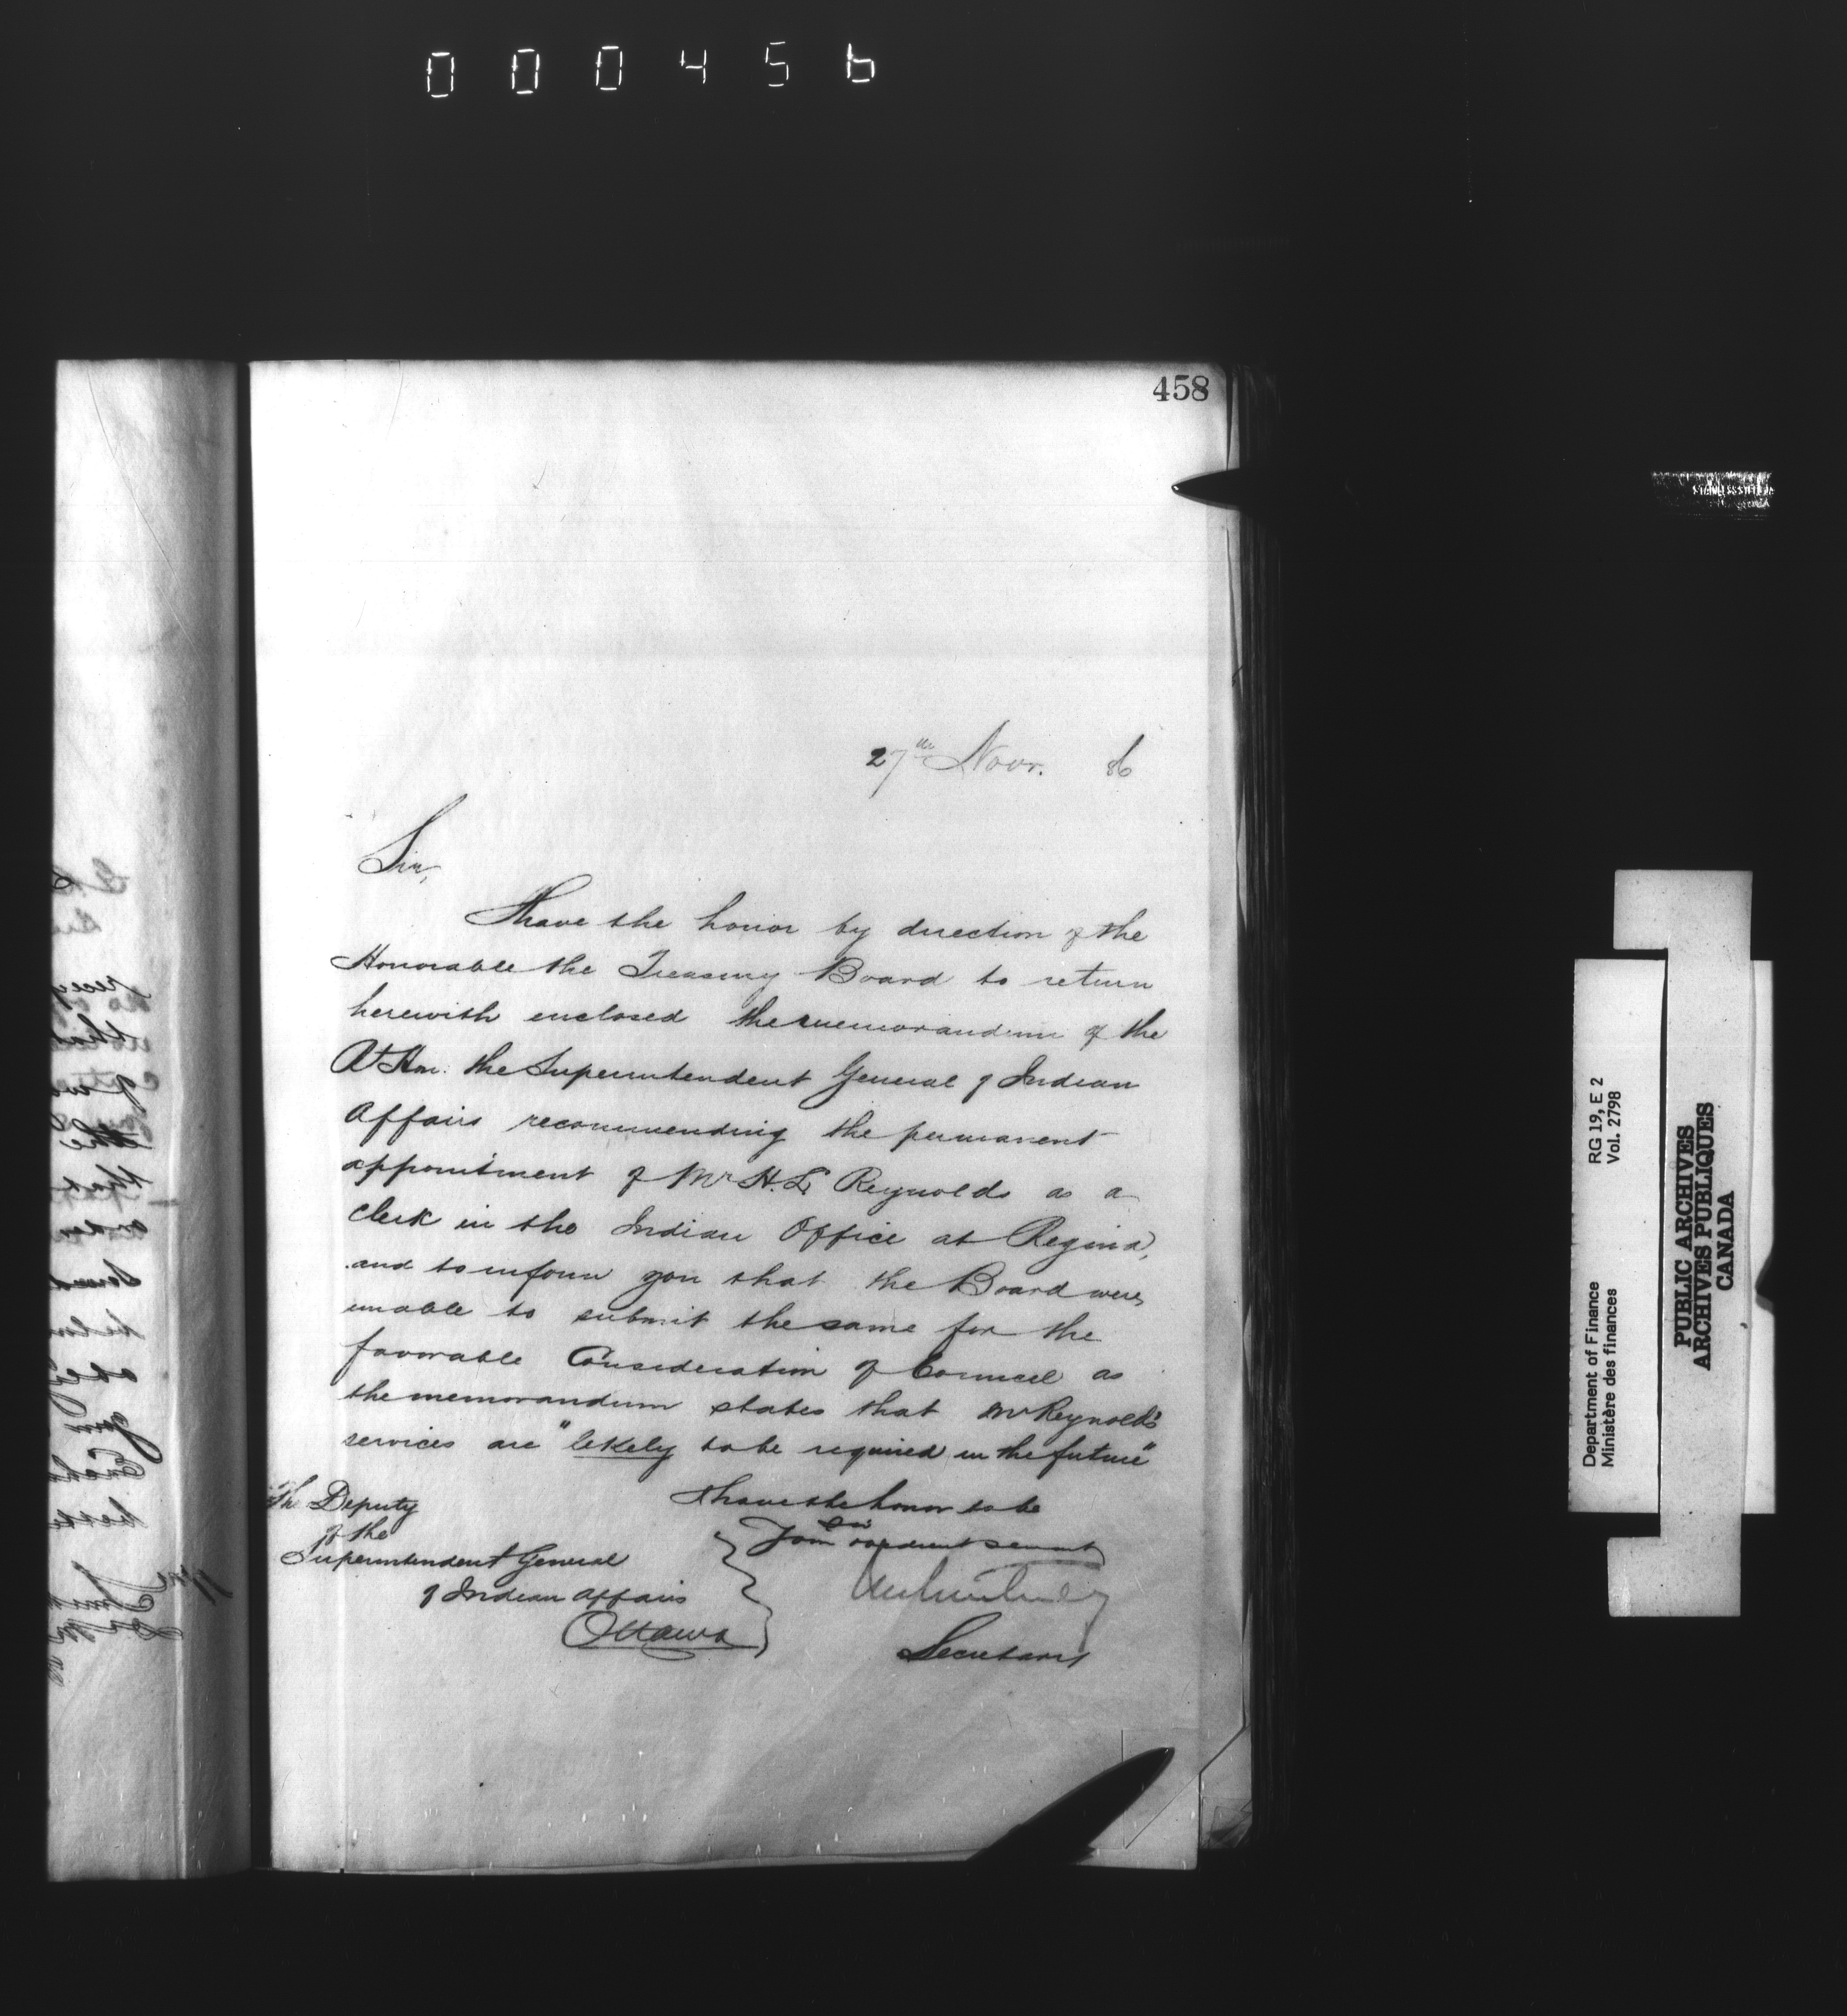 000456
458
27th Novr. 86
Sir,
I have the honor by direction of the
Honorable the Treasury Board to return
herewith enclosed the memorandum of the
Rt Hon. the Superintendent General of Indian
Affairs recommending the permanent
appointment of Mr H. L. Reynolds as a
clerk in the Indian Office at Regina,
and to inform you that the Board were
unable to submit the same for the
favorable Consideration of Council as
the memorandum states that Mr Reynolds
services are "likely to be required in the future"
I have the honor to be
Sir
Your obedient servant
Secretary
The Deputy
of the
Superintendent General
of Indian Affairs
Ottawa
Department of Finance RG 19, E 2
Ministère des finances Vol. 2798
PUBLIC ARCHIVES
ARCHIVES PUBLIQUES
CANADA